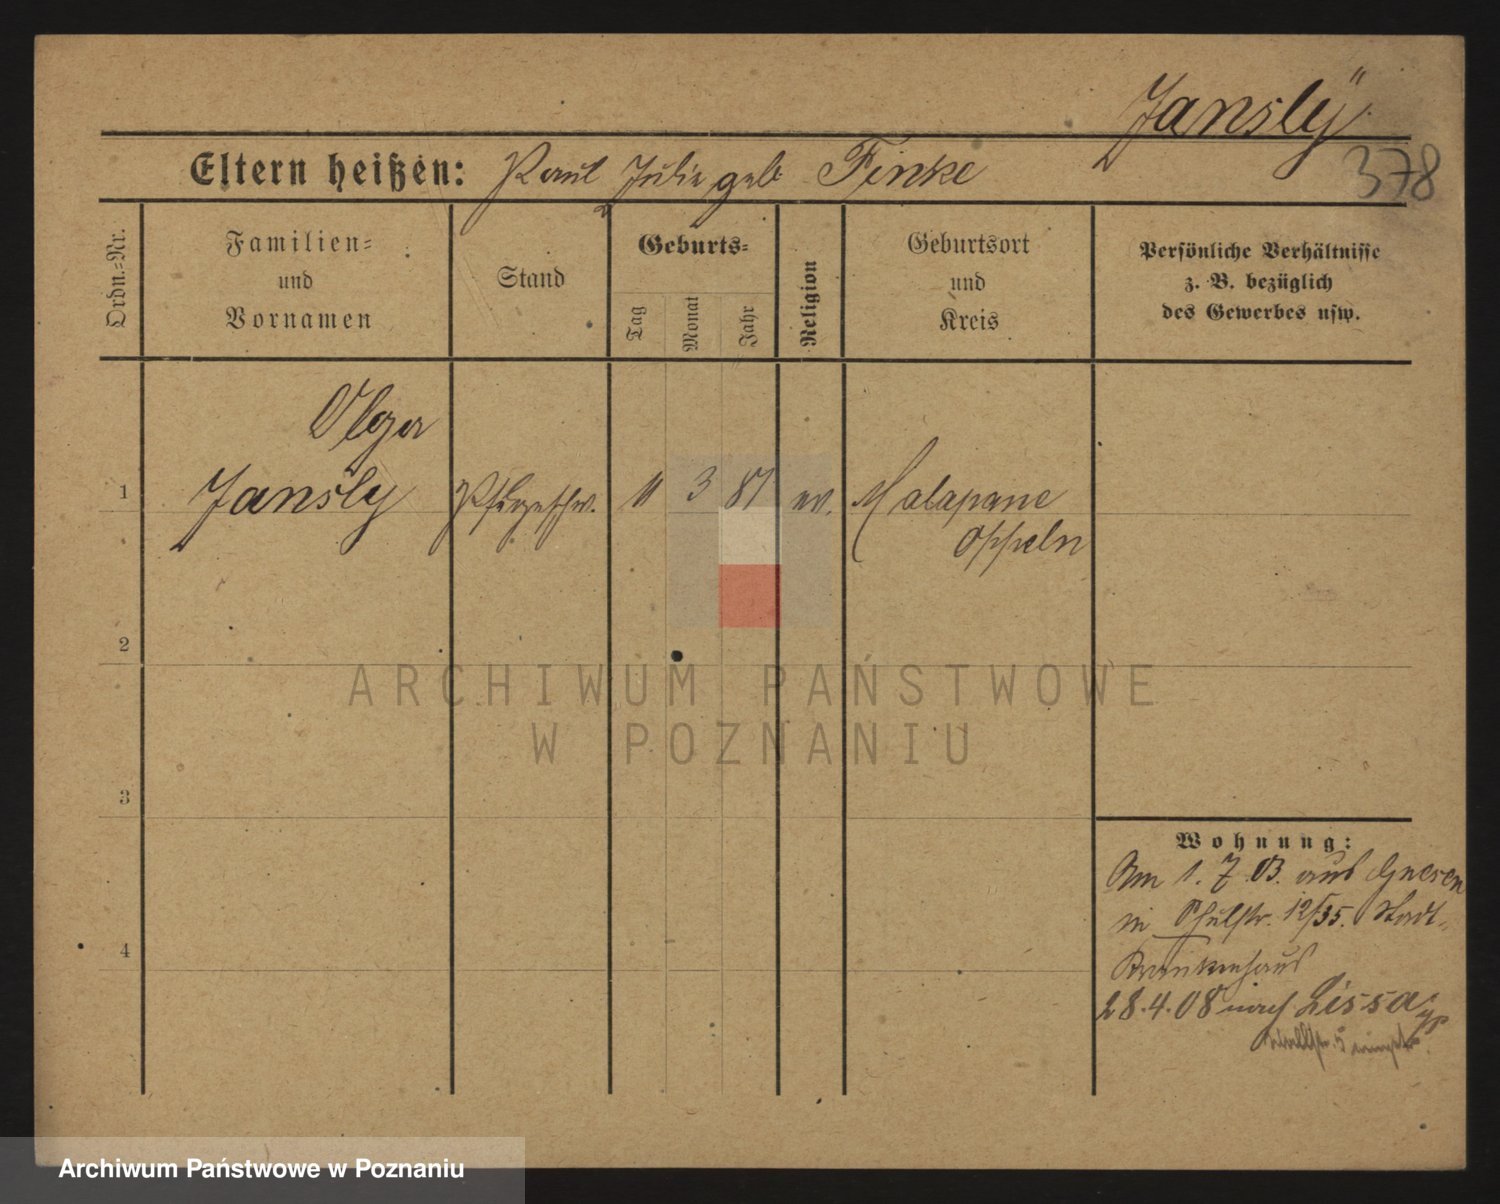 Jansly
378
Eltern heißen: Paul Julie geb Finke
Ordn.=Nr.
Familien=
und
Vornamen
Stand
Geburts=
Tag
Monat
Jahr
Religion
Geburtsort
und
Kreis
Persönliche Verhältnisse
z. B. bezüglich
des Gewerbes usw.
Olga
1 Jansly 11 3 81 ev. Malapane
Oppeln
2
3
4
Wohnung:
Am 1. 7. 03. aus Gnesen
in Schulstr. 12/35. Stadt-
Krankenhaus
28.4.08 nach Lissa
ARCHIWUM PAŃSTWOWE
W POZNANIU
Archiwum Państwowe w Poznaniu